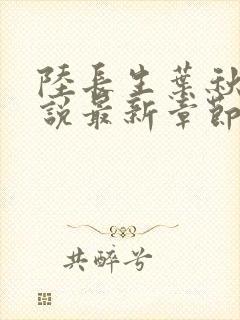 陸長生葉秋
說最新章節
共醉兮